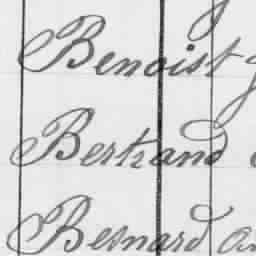 Benoist
Bertrand
Besnard